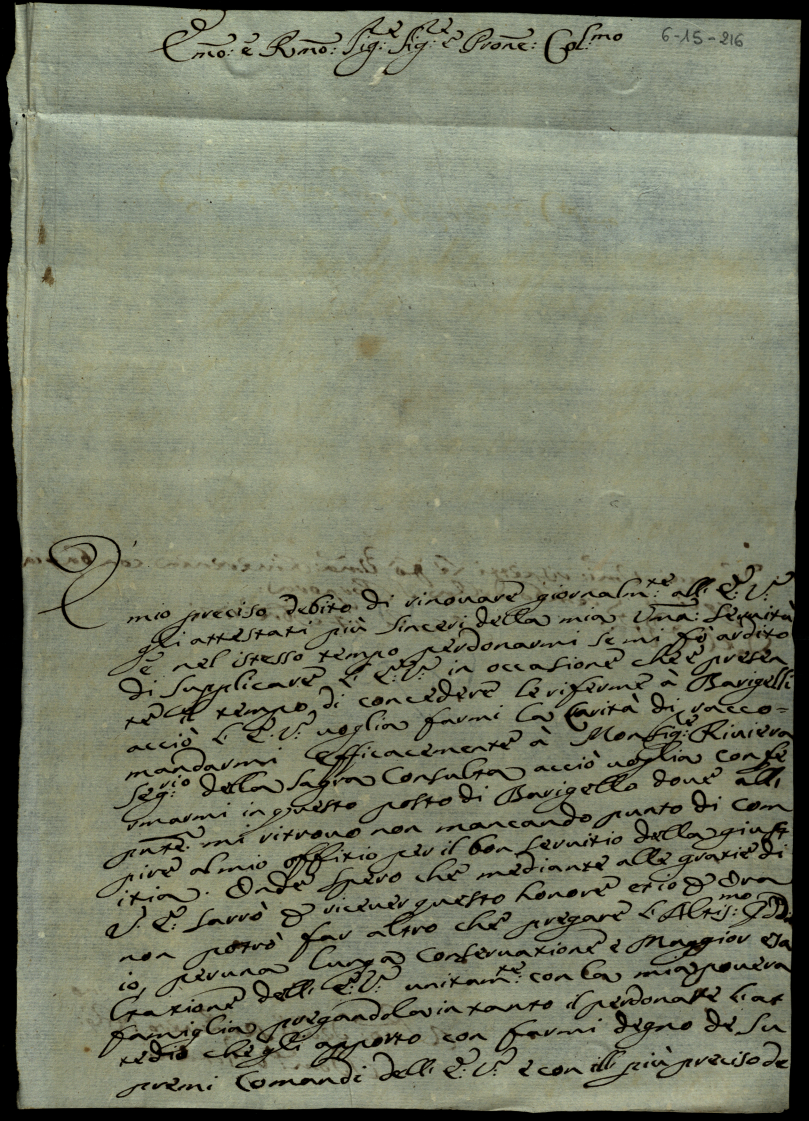 Emo: e Rmo: Sig.re Sig.re e Prone: Col.mo
6-15-216
E
mio preciso debito di rinouare giornalm.te all: E: V:
gli attestati più sinceri della mia Uma: seruitù
e nel istesso tempo perdonarmi se mi fò ardito
di supplicare l: E: V: in occasione che è presen
te il tempo di concedere le riferme à Barigelli
acciò l: E: V: uoglia farmi la Carità di racco=
mandarmi efficacemente à Monsig.re Riuiera
Seg:rio della Sagra Consulta acciò uoglia confe
rmarmi in questo posto di Barigello doue all:
pnte: mi ritrouo non mancando punto di com
pire al mio offitio per il bon seruitio della giust
itia. Onde spero che mediante alle gratie di
V: E: sarrò di riceuer questo honore et io
non potrò far altro che pregare l: Altis:mo
io, per una lunga Conseruatione e Maggior esa
ltatione dell: E: V: unitam.te con la mia pouera
famiglia pregandola in tanto il perdonare l: at
tedio che gli apporto con farmi degno de su
premi Comandi dell: E: V: e con il più preciso de